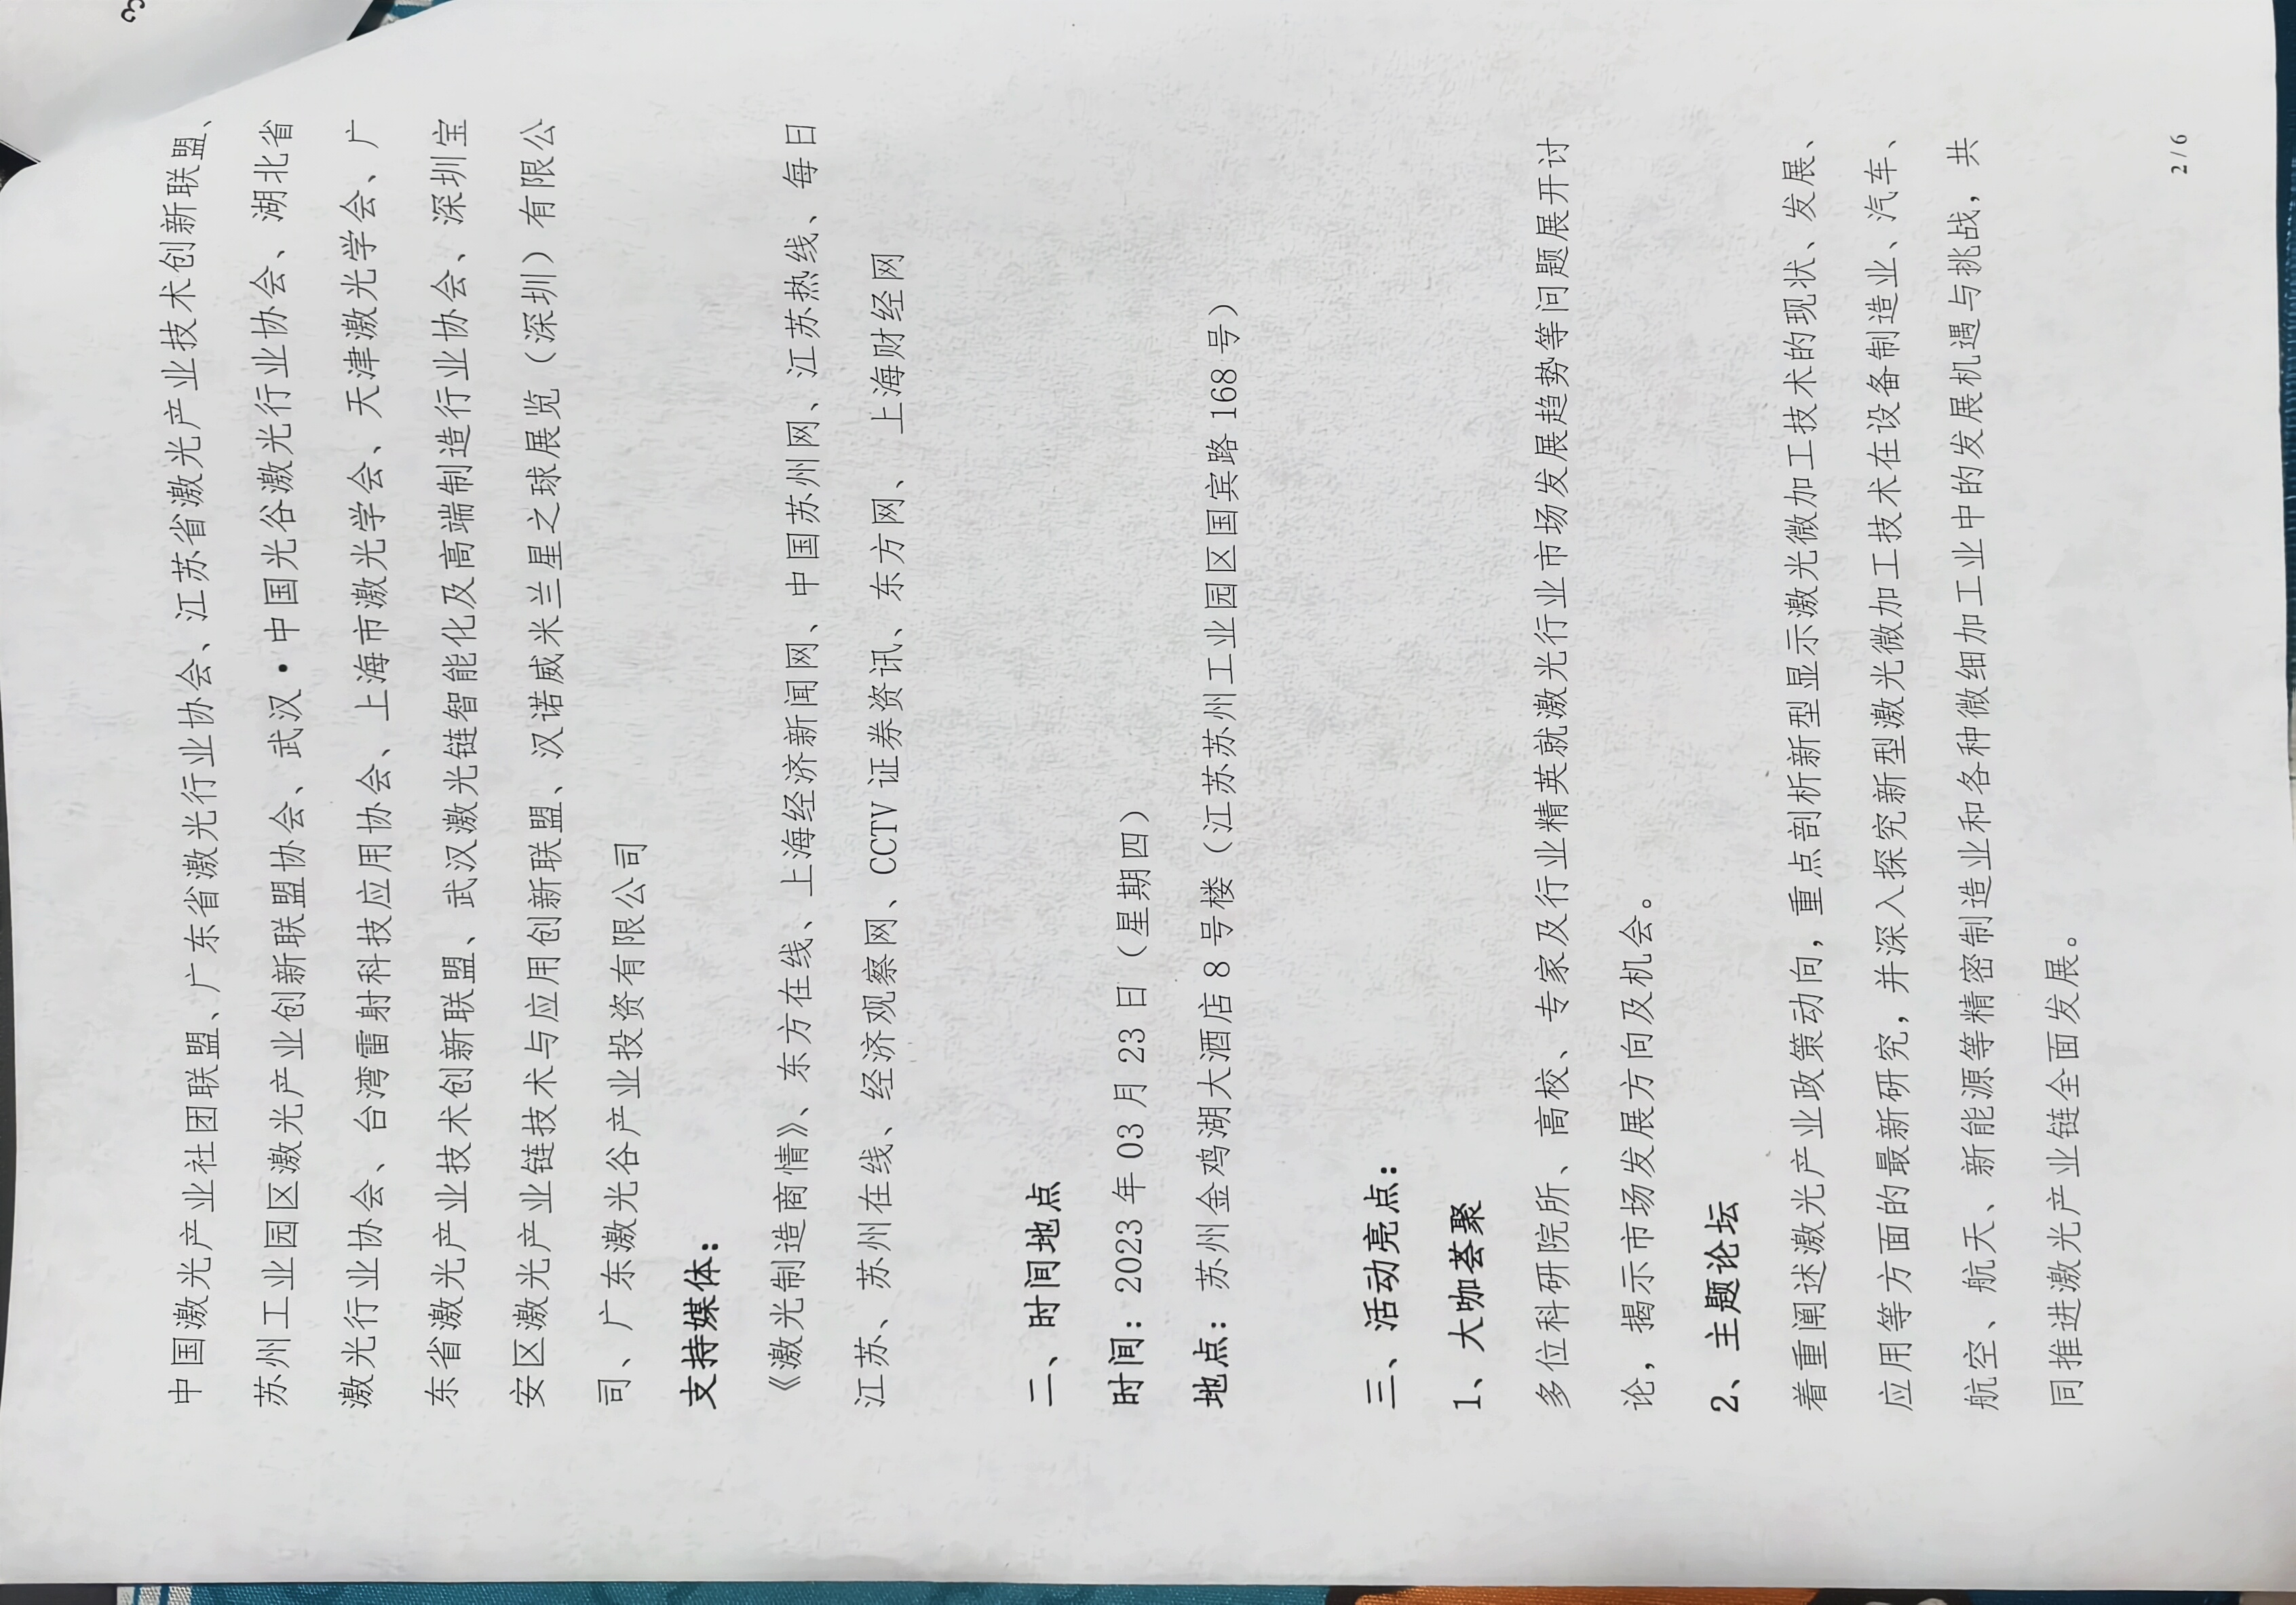 中国激光产业社团联盟、广东省激光行业协会、江苏省激光产业技术创新联盟、
苏州工业园区激光产业创新联盟协会、武汉·中国光谷激光行业协会、湖北省
激光行业协会、台湾雷射科技应用协会、上海市激光学会、天津激光学会、广
东省激光产业技术创新联盟、武汉激光链智能化及高端制造行业协会、深圳宝
安区激光产业链技术与应用创新联盟、汉诺威米兰星之球展览（深圳）有限公
司、广东激光谷产业投资有限公司
支持媒体：
《激光制造商情》、东方在线、上海经济新闻网、中国苏州网、江苏热线、每日
江苏、苏州在线、经济观察网、CCTV 证券资讯、东方网、上海财经网
二、时间地点
时间：2023 年 03 月 23 日（星期四）
地点：苏州金鸡湖大酒店 8 号楼（江苏苏州工业园区国宾路 168 号）
三、活动亮点：
1、大咖荟聚
多位科研院所、高校、专家及行业精英就激光行业市场发展趋势等问题展开讨
论，揭示市场发展方向及机会。
2、主题论坛
着重阐述激光产业政策动向，重点剖析新型显示激光微加工技术的现状、发展、
应用等方面的最新研究，并深入探究新型激光微加工技术在设备制造业、汽车、
航空、航天、新能源等精密制造业和各种微细加工业中的发展机遇与挑战，共
同推进激光产业链全面发展。
2 / 6